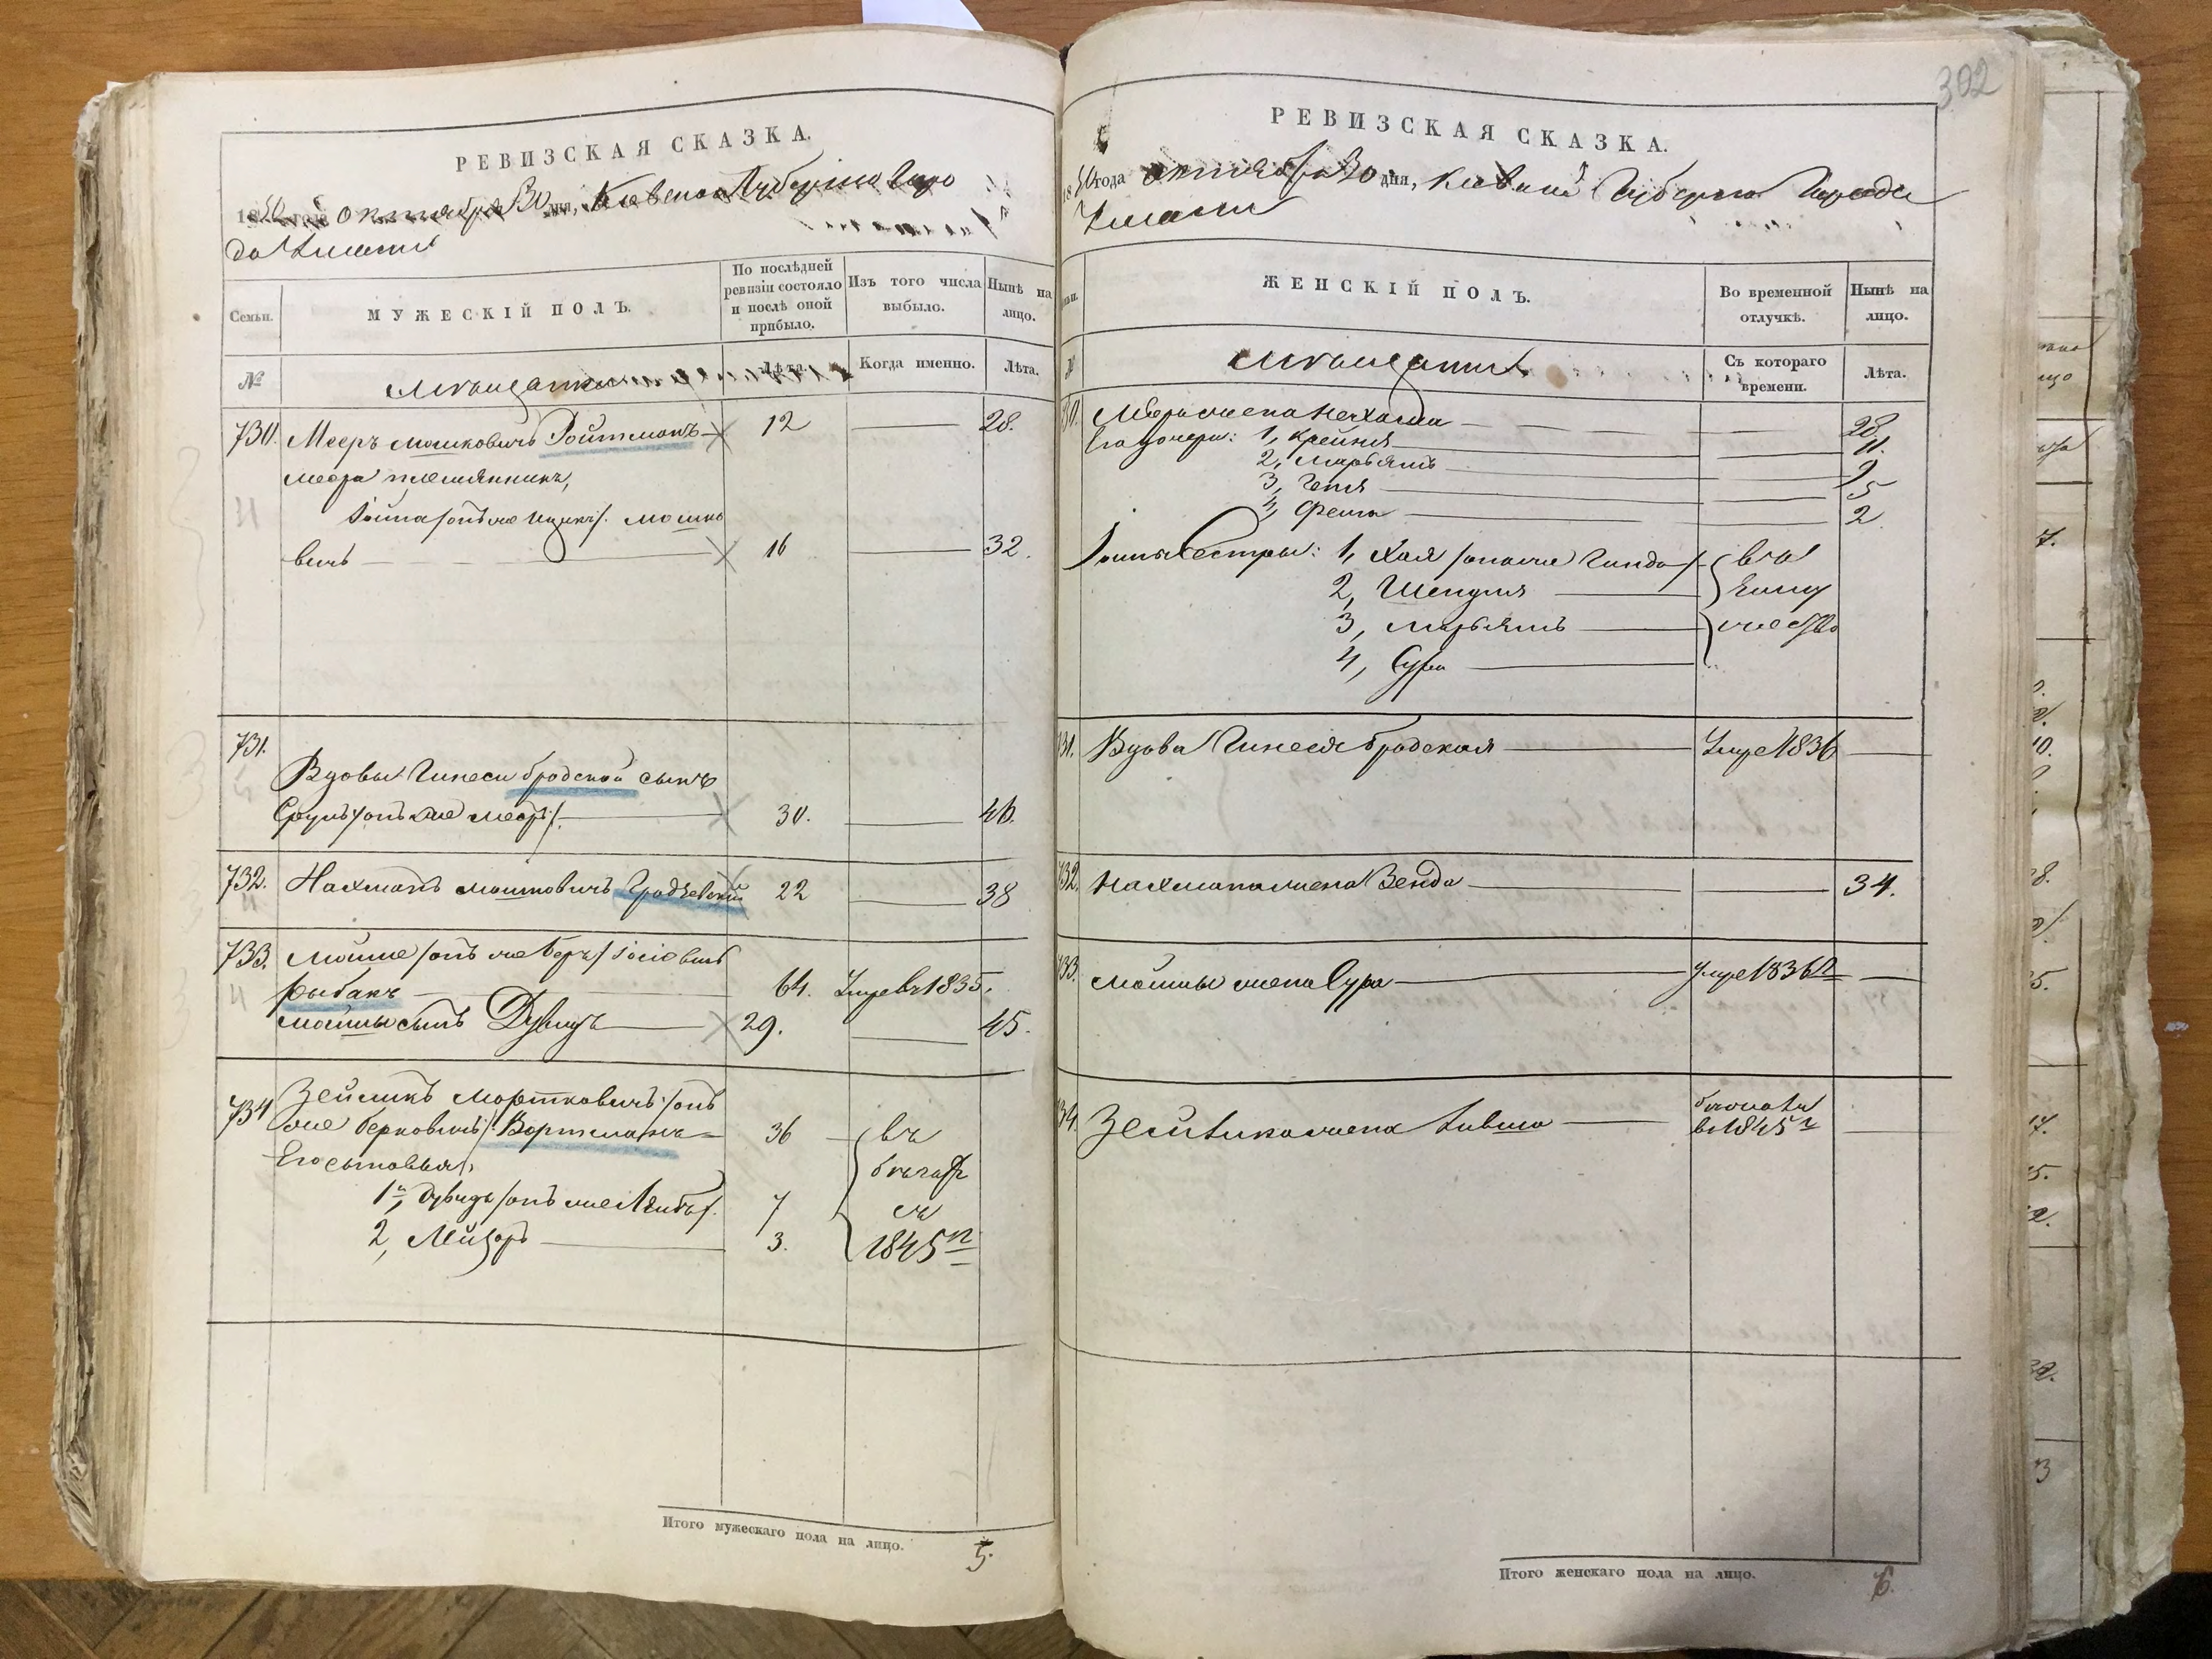 РЕВИЗСКАЯ СКАЗКА.
1850 года октября 30 дня, Киевской Губернии Горо
да Умани
Семьи.
МУЖЕСКІЙ ПОЛЪ.
По послѣдней ревизіи состояло и послѣ оной прибыло.
Изъ того числа выбыло.
Нынѣ на лицо.
№
Мѣщане
Лѣта.
Когда именно.
Лѣта.
730. Мееръ Мошковичъ Ройтманъ 12 28.
Меера племянникъ,
Іойна /онъ же Ицкъ/ Мошко
вичъ 16 32.
731.
Вдовы Гинеси Бродской сынъ
Сруль /онъ же Меер/ 30. 46.
732. Нахманъ Мошковичъ Гродзевскій 22 38
733. Мойше /онъ же Беръ/ Іосіовичъ
Рыбакъ 64. Умре въ 1835.
Мойшы сынъ Дувидъ 29. 45.
734 Зейликъ Мортковичъ /онъ
же Берковичъ/ Вортманъ 36 въ
Его сыновья, бѣгахъ
1й, Дувидъ /онъ же Лейбъ/. 7 съ
2, Лейзоръ 3. 1845 г
Итого мужескаго пола на лицо. 5.
302
РЕВИЗСКАЯ СКАЗКА.
1850 года октября 30 дня, Киевской Губернии Города
Умани
ЖЕНСКІЙ ПОЛЪ.
Во временной отлучкѣ.
Нынѣ на лицо.
№
Мѣщане
Съ котораго времени.
Лѣта.
30. Меера жена Нехама 28.
Его дочери: 1, Крейня 11.
2, Марьямъ 9
3, Геня 5
4, Фейга 2.
Іойны сестры: 1, Хая /она же Гинда/ въ
2, Шендля Заму
3, Марьямъ жество
4, Сура
31. Вдова Гинеся Бродская Умре 1836
32. Нахмана жена Зенда 34.
33. Мойшы жена Сура Умре 1836 г
34. Зейлика жена Ливша бежала
въ 1845 г
Итого женскаго пола на лицо. 6.